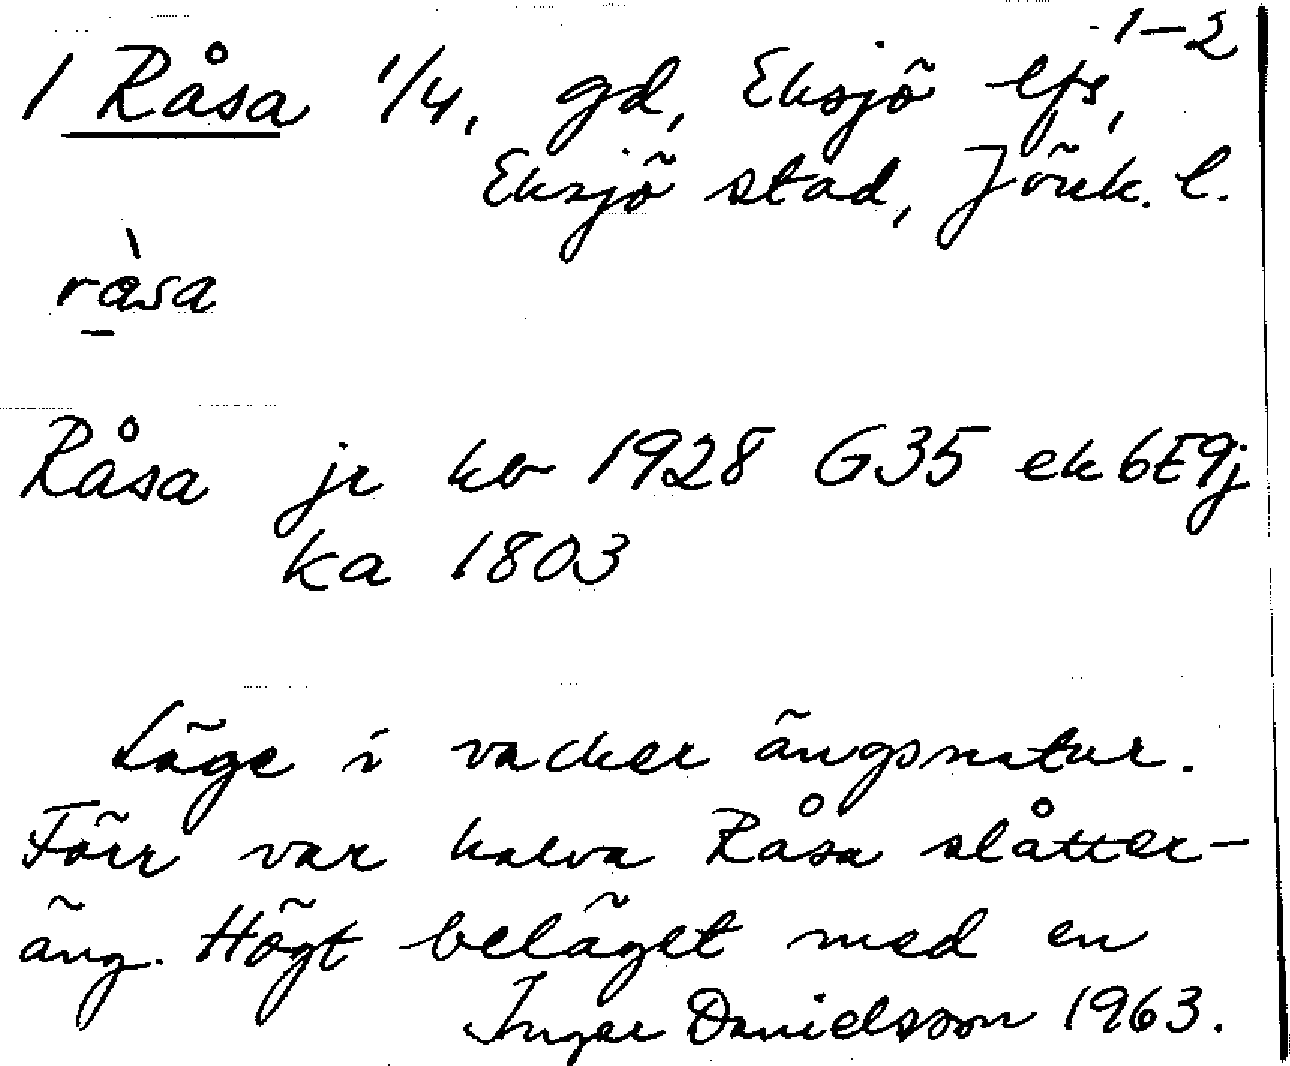 1-2
1 Råsa 1/4, gd, Eksjö lfs,
Eksjö stad, Jönk. l.
ràsa
Råsa jr ko 1928 G35 ek 6E9j
ka 1803
Läge i vacker ängsnatur.
Förr var halva Råsa slåtter-
äng. Högt beläget med en
Ingar Danielsson 1963.